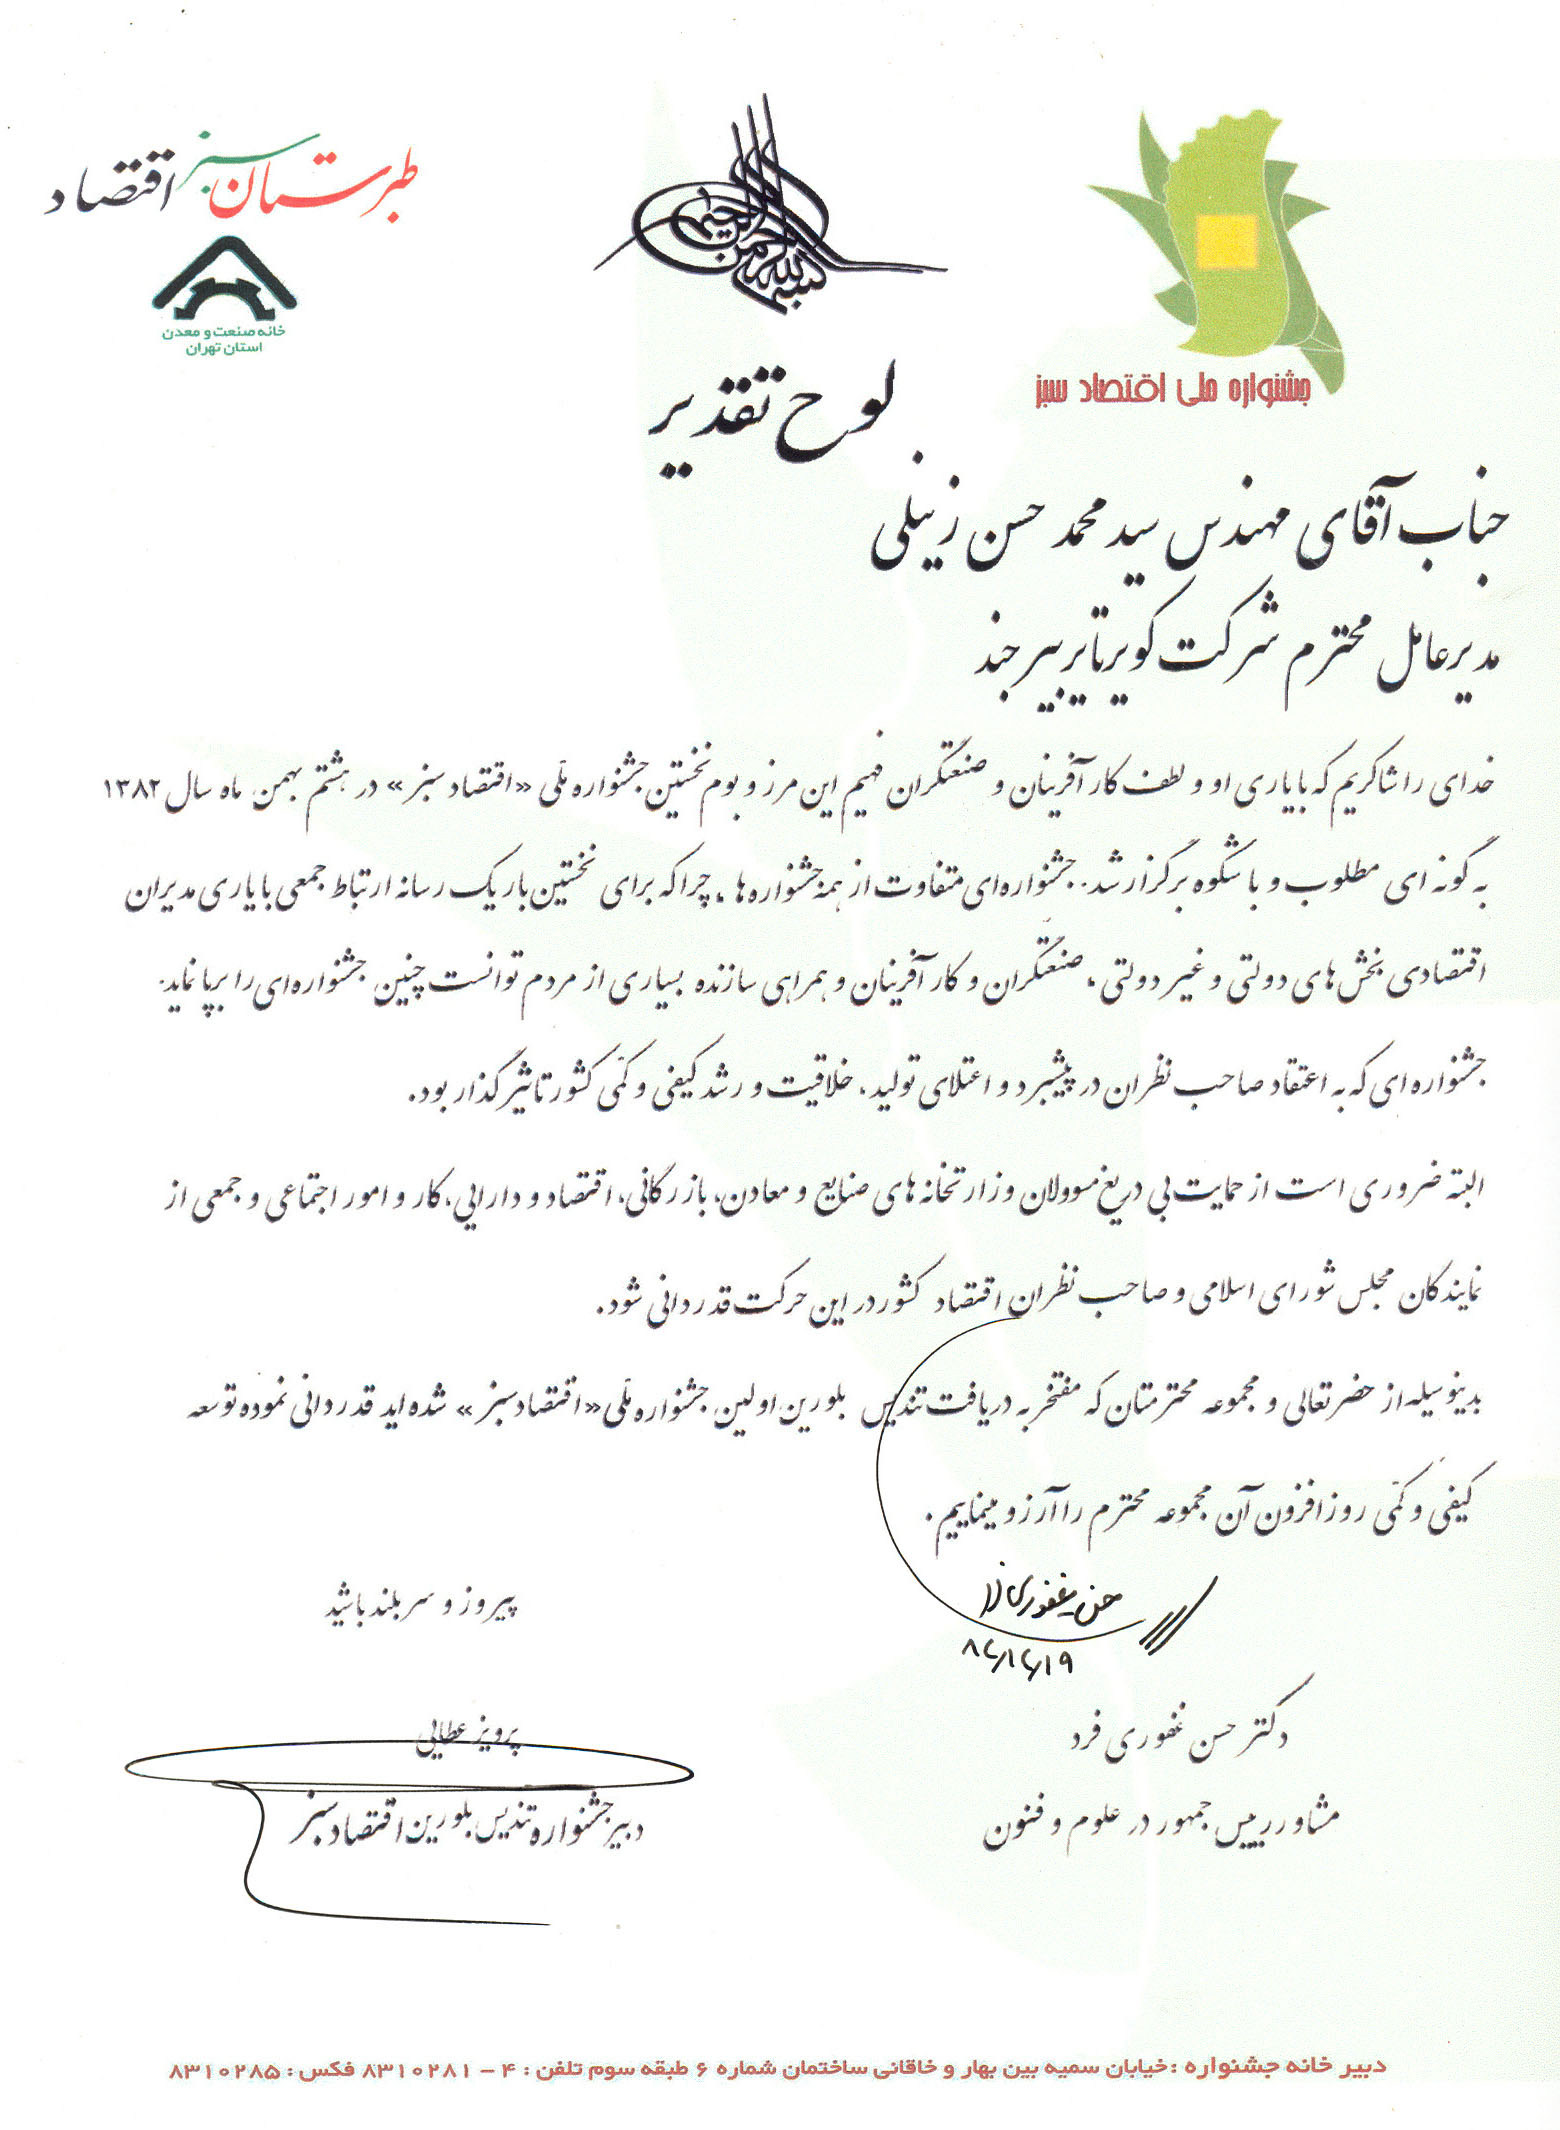 طبرستان سبز اقتصاد
خانه صنعت و معدن
استان تهران
بسم الله الرحمن الرحیم
جشنواره ملی اقتصاد سبز
لوح تقدیر
جناب آقای مهندس سید محمد حسن زینلی
مدیر عامل محترم شرکت کویر تایر بیرجند
خدای را شاکریم که با یاری او و لطف کار آفرینان و صنعتگران فهیم این مرز و بوم نخستین جشنواره ملّی «اقتصاد سبز» در هشتم بهمن ماه سال ۱۳۸۲
به گونه ای مطلوب و با شکوه برگزار شد. جشنواره ای متفاوت از همه جشنواره ها، چرا که برای نخستین بار یک رسانه ارتباط جمعی با یاری مدیران
اقتصادی بخش های دولتی و غیر دولتی، صنعتگران و کار آفرینان و همراهی سازنده بسیاری از مردم توانست چنین جشنواره ای را برپا نماید.
جشنواره ای که به اعتقاد صاحب نظران در پیشبرد و اعتلای تولید، خلاقیت و رشد کیفی و کمّی کشور تاثیر گذار بود.
البته ضروری است از حمایت بی دریغ مسوولان وزارتخانه های صنایع و معادن، بازرگانی، اقتصاد و دارایی، کار و امور اجتماعی و جمعی از
نمایندگان مجلس شورای اسلامی و صاحب نظران اقتصاد کشور در این حرکت قدردانی شود.
بدینوسیله از حضرتعالی و مجموعه محترمتان که مفتخر به دریافت تندیس بلورین اولین جشنواره ملّی «اقتصاد سبز» شده اید قدردانی نموده توسعه
کیفی و کمّی روز افزون آن مجموعه محترم را آرزو مینماییم.
پیروز و سربلند باشید
حسن غفوری فرد
۸۲/۱۲/۱۹
دکتر حسن غفوری فرد
مشاور رییس جمهور در علوم و فنون
پرویز عطایی
دبیر جشنواره تندیس بلورین اقتصاد سبز
دبیر خانه جشنواره : خیابان سمیه بین بهار و خاقانی ساختمان شماره ۶ طبقه سوم تلفن : ۴ - ۸۳۱۰۲۸۱ فکس : ۸۳۱۰۲۸۵